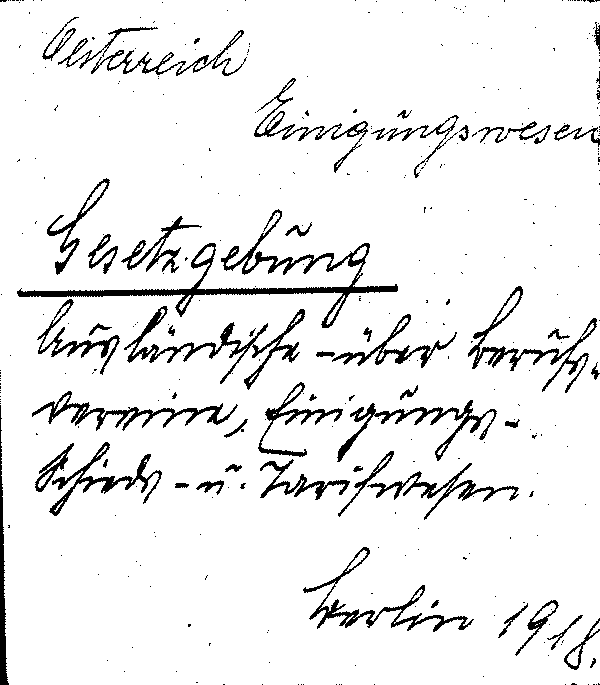 Österreich
Einigungswesen
Gesetzgebung
Ausländische - über Berufs-
vereine, Einigungs-
Schieds- u. Tarifwesen.
Berlin 1918.